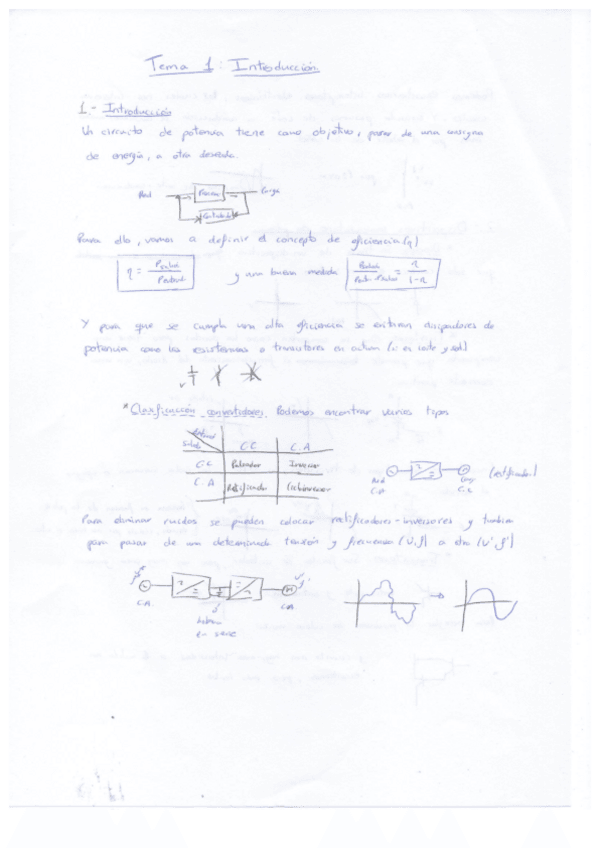 Tema 1: Introducción
1.- Introducción
Un circuito de potencia tiene como objetivo, pasar, de una
de energía, a otra deseada.
Red Carga
Para ello, vamos a definir el concepto de eficiencia (η)
η = y una buena medida = η / 1-η
Y para que se cumpla una alta eficiencia se evitaran disipadores de
potencia como las resistencias o transistores en activa (si en corte y sat)
* Clasificación convertidores. Podemos encontrar varios tipos
Entrada
Salida C.C C.A
C.C Pulsador Inversor
C.A Rectificador
Red C.A. C.C. (rectificador)
Para eliminar ruidos se pueden colocar rectificadores-inversores y tambien
para pasar de una determinada tensión y frecuencia (V,f) a otra (V',f')
C.A. C.A